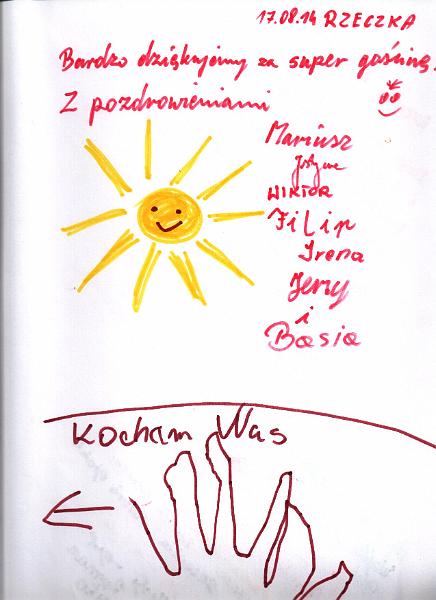 17.08.14 RZECZKA
Bardzo dziękujemy za super gościnę.
Z pozdrowieniami
Mariusz
Justyna
WIKTOR
Filip
Irena
Jerzy
i
Basia
Kocham Was